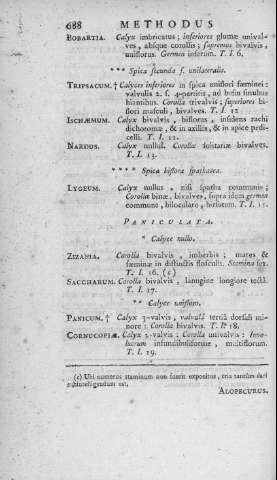 688 METHODUS
BOBARTIA. Calyx imbricatus; inferiores glumæ unival-
ves, absque corollis; supremus bivalvis,
uniflorus. Germen inferum. T. I. 6.
*** Spica secunda s. unilateralis.
TRIPSACUM. † Calyces inferiores in spica uniflori fœminei:
valvulis 2. s. 4-partitis, ad basin sinubus
hiantibus. Corolla trivalvis; superiores bi-
flori masculi, bivalves. T. I. 12.
ISCHÆMUM. Calyx bivalvis, biflorus, insidens rachi
dichotomæ, & in axillis, & in apice pedi-
celli. T. I. 12.
NARDUS. Calyx nullus. Corolla solitariæ bivalves.
T. I. 13.
**** Spica biflora spathacea.
LYGEUM. Calyx nullus, nisi spatha communis;
Corollæ binæ, bivalves, supra idem germen
commune, biloculare, hirsutum. T. I. 15.
PANICULATA.
* Calyce nullo.
ZIZANIA. Corolla bivalvis, imberbis; mares &
fœminæ in distinctis flosculis. Stamina sex.
T. I. 16. (c)
SACCHARUM. Corolla bivalvis, lanugine longiore tecta.
T. I. 17.
** Calyce unifloro.
PANICUM. † Calyx 3-valvis, valvulâ tertiâ dorsali mi-
nore: Corolla bivalvis. T. I. 18.
CORNUCOPIÆ. Calyx 2-valvis: Corolla univalvis: Invo-
lucrum infundibuliforme, multiflorum.
T. I. 19.
(c) Ubi numerus staminum non fuerit expositus, tria tantum dari
subintelligendum est.
ALOPECURUS.